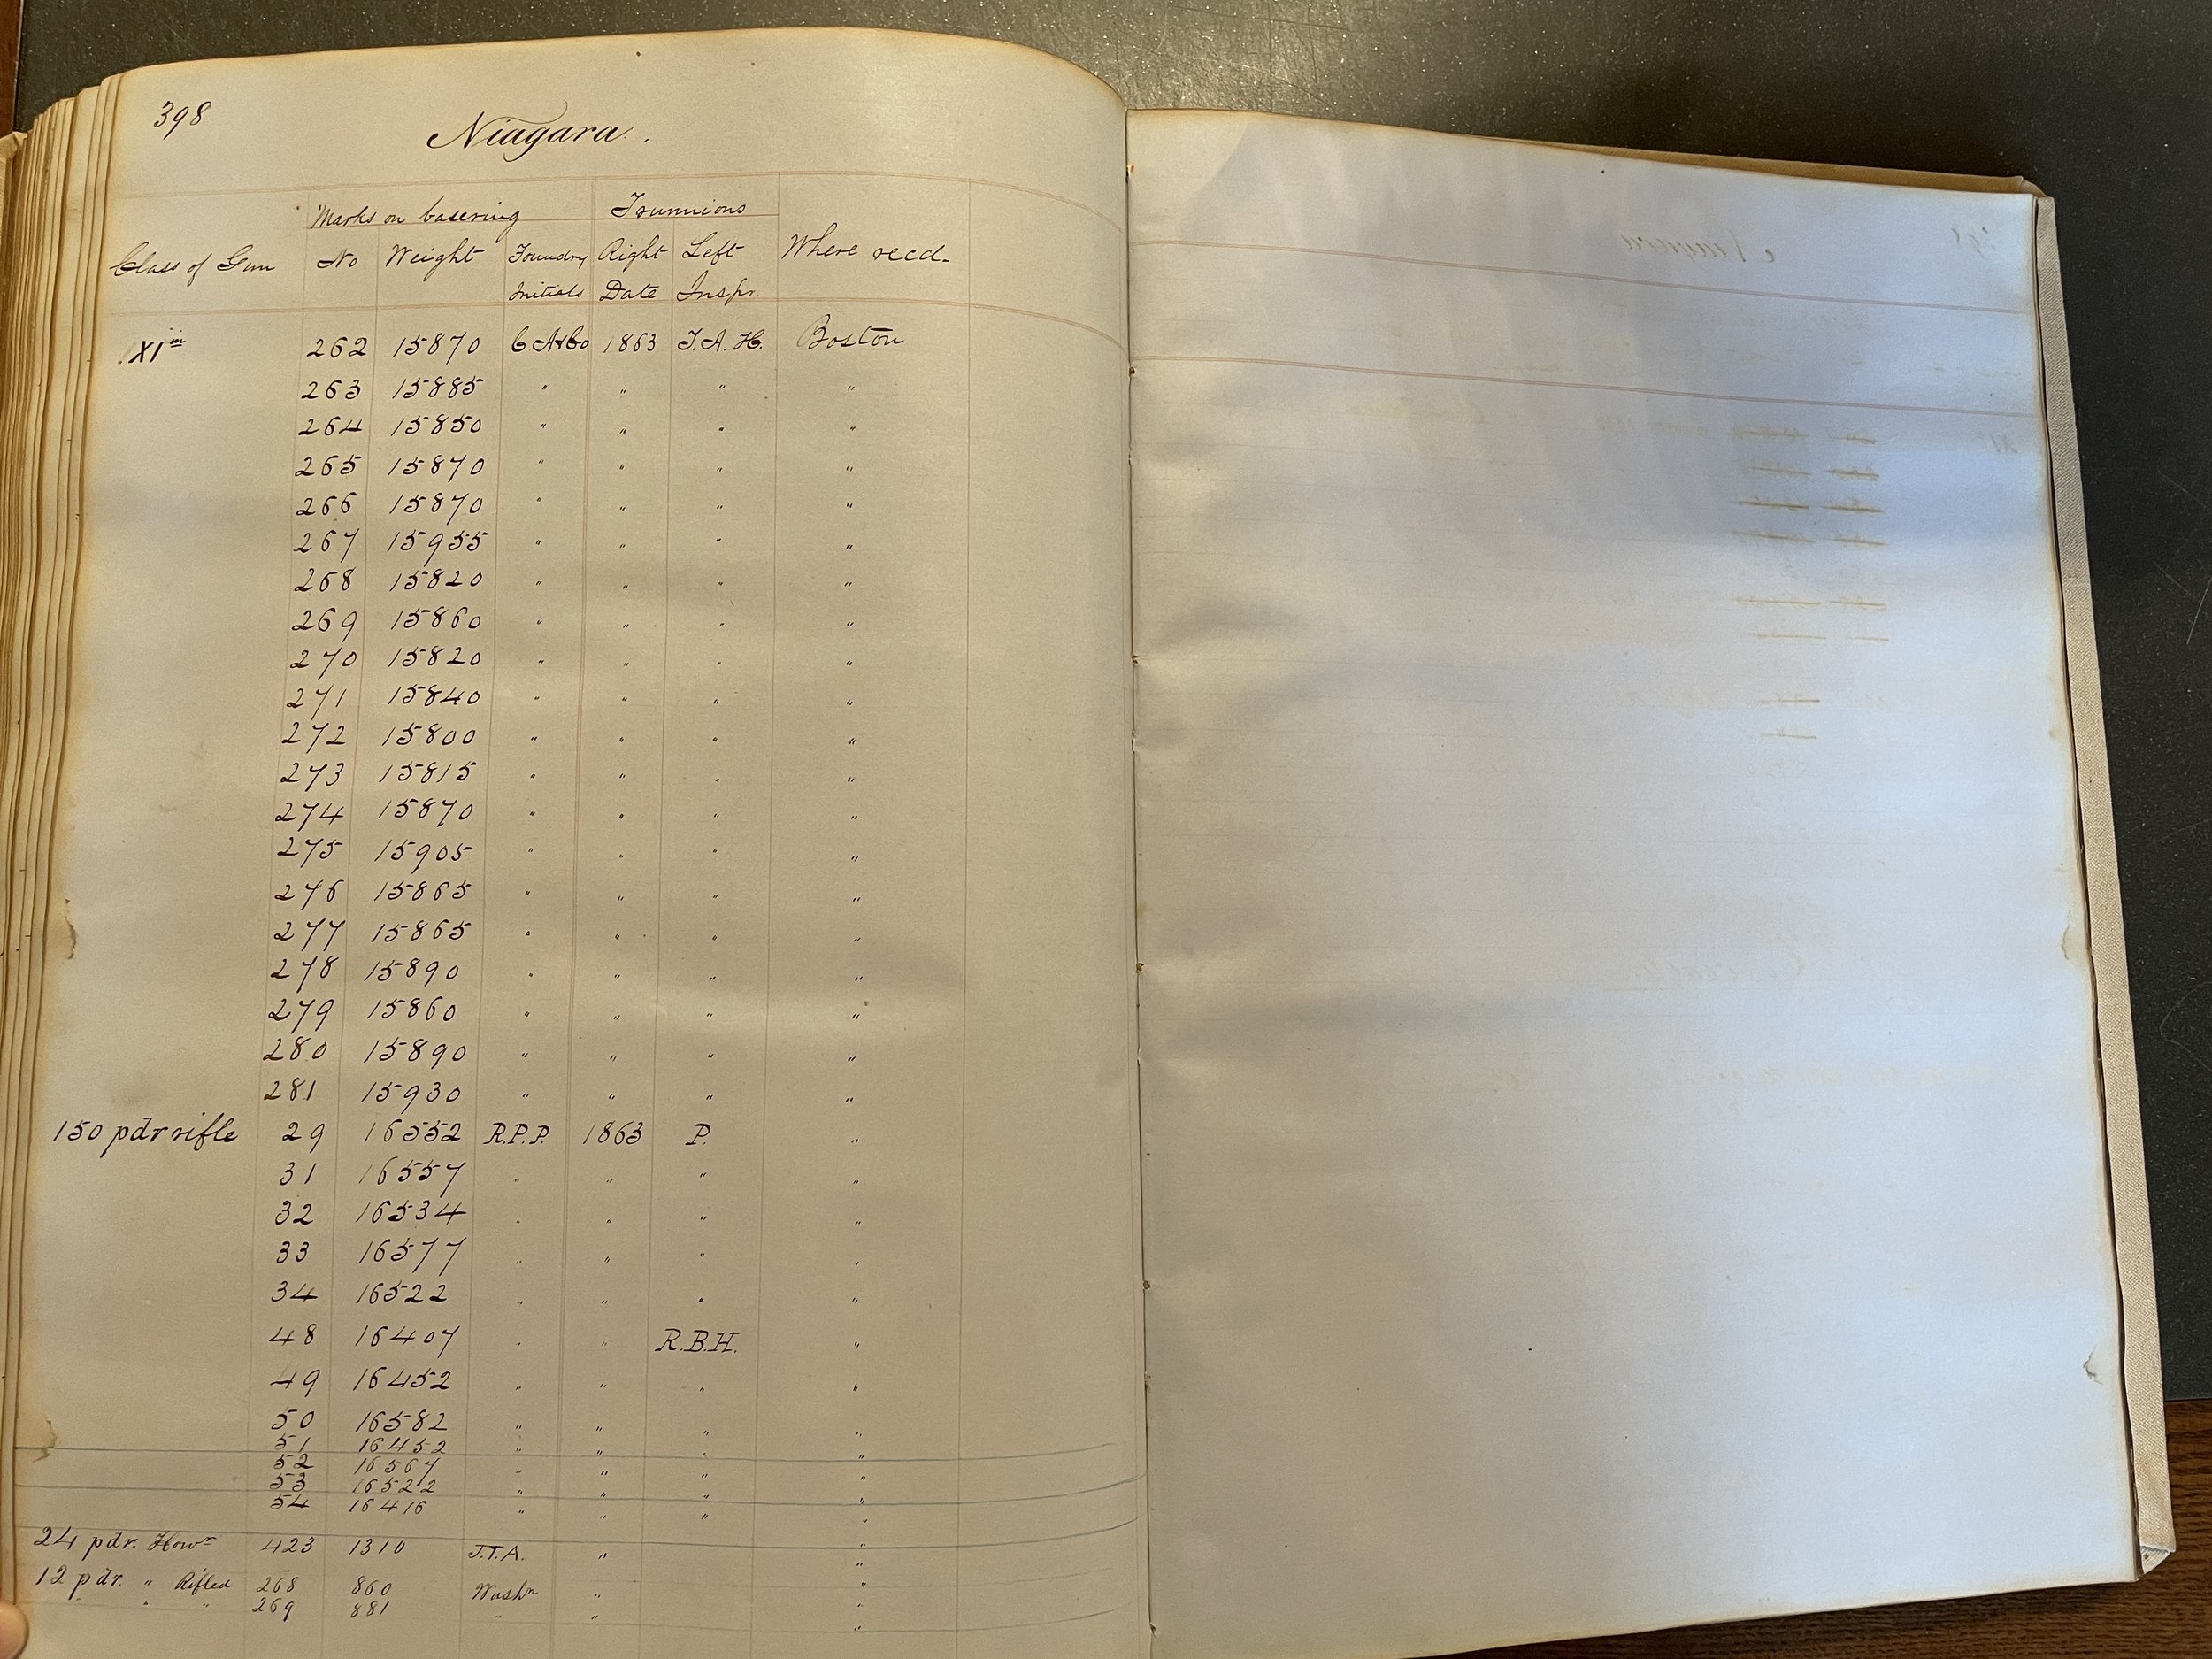 398
Niagara.
Marks on basering Trunnions
Class of Gun No Weight Foundry Right Left Where recd.
Initials Date Inspr.
XI in 262 15870 C A & Co 1863 J.A.H. Boston
263 15885 " " " "
264 15850 " " " "
265 15870 " " " "
266 15870 " " " "
267 15955 " " " "
268 15820 " " " "
269 15860 " " " "
270 15820 " " " "
271 15840 " " " "
272 15800 " " " "
273 15815 " " " "
274 15870 " " " "
275 15905 " " " "
276 15865 " " " "
277 15865 " " " "
278 15890 " " " "
279 15860 " " " "
280 15890 " " " "
281 15930 " " " "
150 pdr rifle 29 16552 R.P.P. 1863 P. "
31 16557 " " " "
32 16534 " " " "
33 16577 " " " "
34 16522 " " " "
48 16407 " " R.B.H. "
49 16452 " " " "
50 16582 " " " "
51 16452 " " " "
52 16567 " " " "
53 16522 " " " "
54 16416 " " " "
24 pdr. Howr 423 1310 J.T.A. " "
12 pdr. " Rifled 268 860 Washn " "
" " 269 881 " " "